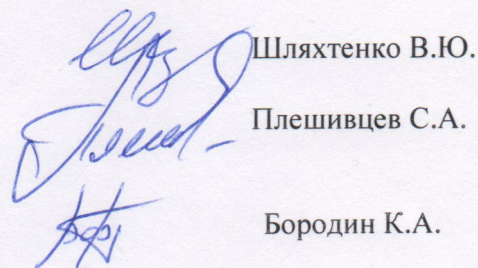 Шляхтенко В.Ю.
Плешивцев С.А.
Бородин К.А.